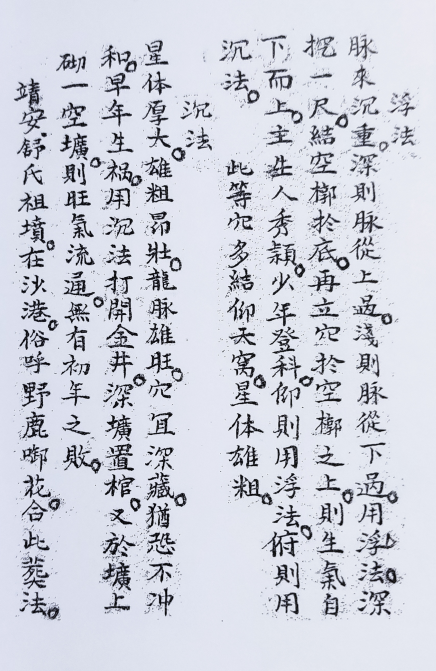 浮法
脉來沉重。深則脉從上過。淺則脉從下過。用浮法。深
挖一尺。結空槨於底。再立穴於空槨之上。則生氣自
下而上。主生人秀頴。少年登科。仰則用浮法。俯則用
沉法。　此等穴多結仰天窩。星体雄粗。
沉法
星体厚大。雄粗昂壯。龍脉雄旺。穴宜深藏。猶恐不冲
和。早年生禍。用沉法打開金井。深壙置棺。又於壙上
砌一空壙。則旺氣流通。無有初年之敗。
靖安舒氏祖墳。在沙港。俗呼野鹿啣花。合此葬法。